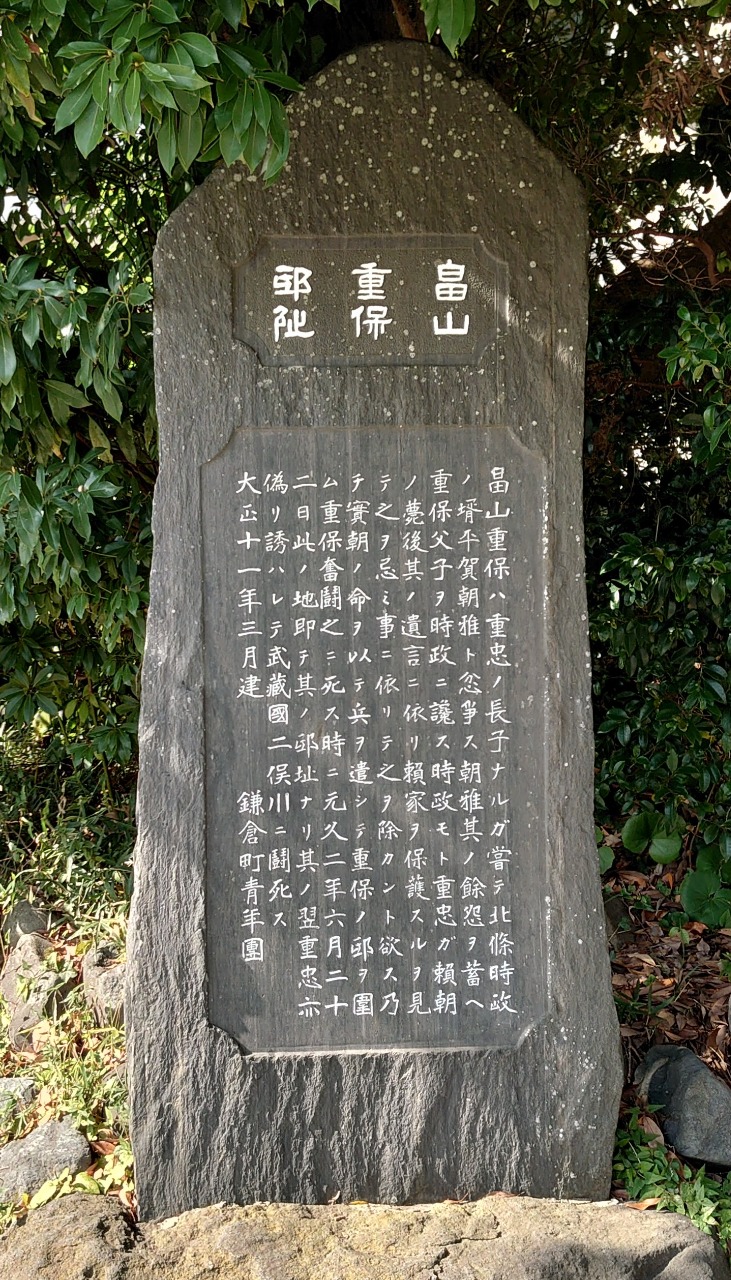 畠山
重保
邸阯
畠山重保ハ重忠ノ長子ナルガ嘗テ北條時政
ノ壻平賀朝雅ト忿爭ス朝雅其ノ餘怨ヲ蓄ヘ
重保父子ヲ時政ニ讒ス時政モト重忠ガ賴朝
ノ薨後其ノ遺言ニ依リ賴家ヲ保護スルヲ見
テ之ヲ忌ミ事ニ依リテ之ヲ除カント欲ス乃
チ實朝ノ命ヲ以テ兵ヲ遣シテ重保ノ邸ヲ圍
ム重保奮鬪之ニ死ス時ニ元久二年六月二十
二日此ノ地即チ其ノ邸址ナリ其ノ翌重忠亦
偽リ誘ハレテ武藏國二俣川ニ鬪死ス
大正十一年三月建 鎌倉町青年團